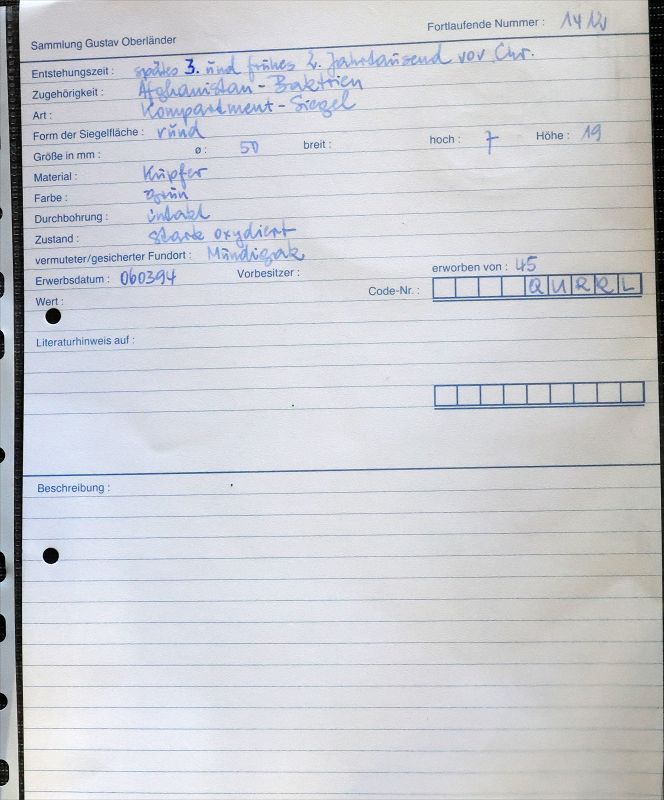 Sammlung Gustav Oberländer Fortlaufende Nummer : 1412
Entstehungszeit : spätes 3. und frühes 2. Jahrtausend vor Chr.
Zugehörigkeit : Afghanistan - Baktrien
Art : Kompartment - Siegel
Form der Siegelfläche : rund
Größe in mm : ø : 50 breit : hoch : 7 Höhe : 19
Material : Kupfer
Farbe : grün
Durchbohrung : intakt
Zustand : stark oxydiert
vermuteter/gesicherter Fundort : Mundigak
Erwerbsdatum : 060394 Vorbesitzer : erworben von : 45
Wert : Code-Nr. : QURRL
Literaturhinweis auf :
Beschreibung :